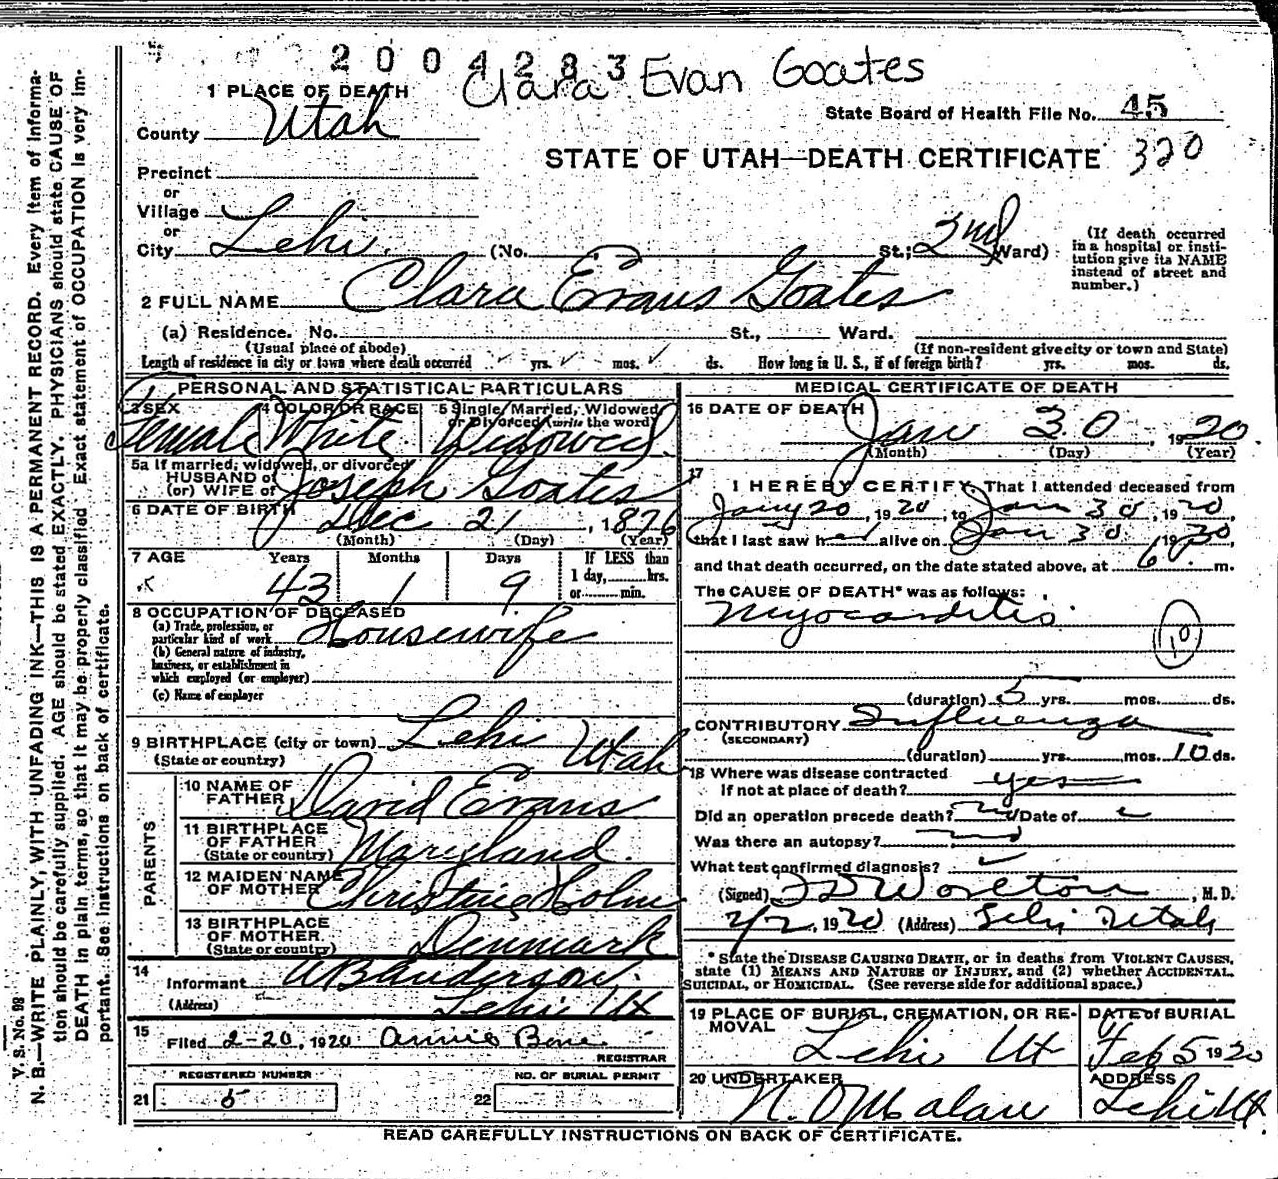 2004283
Clara Evan Goates
1 PLACE OF DEATH
State Board of Health File No. 45
County Utah
STATE OF UTAH—DEATH CERTIFICATE 320
Precinct
or
Village
or
City Lehi. (No. St.; 2nd Ward)
(If death occurred in a hospital or insti-
tution give its NAME
instead of street and
number.)
2 FULL NAME Clara Evans Goates
(a) Residence. No. St., Ward.
(Usual place of abode) (If non-resident give city or town and State)
Length of residence in city or town where death occurred yrs. mos. ds. How long in U. S., if of foreign birth? yrs. mos. ds.
PERSONAL AND STATISTICAL PARTICULARS
3 SEX 4 COLOR OR RACE 5 Single, Married, Widowed
or Divorced (write the word)
Female White Widowed
5a If married, widowed, or divorced
HUSBAND of
(or) WIFE of Joseph Goates
6 DATE OF BIRTH Dec 21, 1876
(Month) (Day) (Year)
7 AGE Years Months Days If LESS than
1 day, hrs.
or min.
43 1 9
8 OCCUPATION OF DECEASED
(a) Trade, profession, or
particular kind of work Housewife
(b) General nature of industry,
business, or establishment in
which employed (or employer)
(c) Name of employer
9 BIRTHPLACE (city or town) Lehi
(State or country) Utah
PARENTS
10 NAME OF
FATHER David Evans
11 BIRTHPLACE
OF FATHER
(State or country) Maryland.
12 MAIDEN NAME
OF MOTHER Christine Holm
13 BIRTHPLACE
OF MOTHER.
(State or country) Denmark
14
Informant A B Anderson.
(Address) Lehi Ut
15
Filed 2-20, 1920 Annie Bone.
REGISTRAR
REGISTERED NUMBER NO. OF BURIAL PERMIT
21 5 22
MEDICAL CERTIFICATE OF DEATH
16 DATE OF DEATH Jan 30, 1920.
(Month) (Day) (Year)
17
I HEREBY CERTIFY, That I attended deceased from
Jany 20, 1920, to Jan 30, 1920,
that I last saw her alive on Jan 30, 1920,
and that death occurred, on the date stated above, at 6 m.
The CAUSE OF DEATH* was as follows:
Myocarditis
10
(duration) 5 yrs. mos. ds.
CONTRIBUTORY Influenza
(SECONDARY)
(duration) yrs. mos. 10 ds.
18 Where was disease contracted
If not at place of death? yes
Did an operation precede death? no Date of
Was there an autopsy? no
What test confirmed diagnosis?
(Signed) Worlton, M. D.
2/2, 1920 (Address) Lehi Utah
* State the DISEASE CAUSING DEATH, or in deaths from VIOLENT CAUSES,
state (1) MEANS AND NATURE OF INJURY, and (2) whether ACCIDENTAL,
SUICIDAL, or HOMICIDAL. (See reverse side for additional space.)
19 PLACE OF BURIAL, CREMATION, OR RE-
MOVAL
DATE of BURIAL
Lehi Ut Feb 5 1920
20 UNDERTAKER ADDRESS
N. O. Malan Lehi Ut
READ CAREFULLY INSTRUCTIONS ON BACK OF CERTIFICATE.
V. S. No. 98
N. B.—WRITE PLAINLY, WITH UNFADING INK—THIS IS A PERMANENT RECORD. Every item of informa-
tion should be carefully supplied. AGE should be stated EXACTLY. PHYSICIANS should state CAUSE OF
DEATH in plain terms, so that it may be properly classified. Exact statement of OCCUPATION is very im-
portant. See instructions on back of certificate.